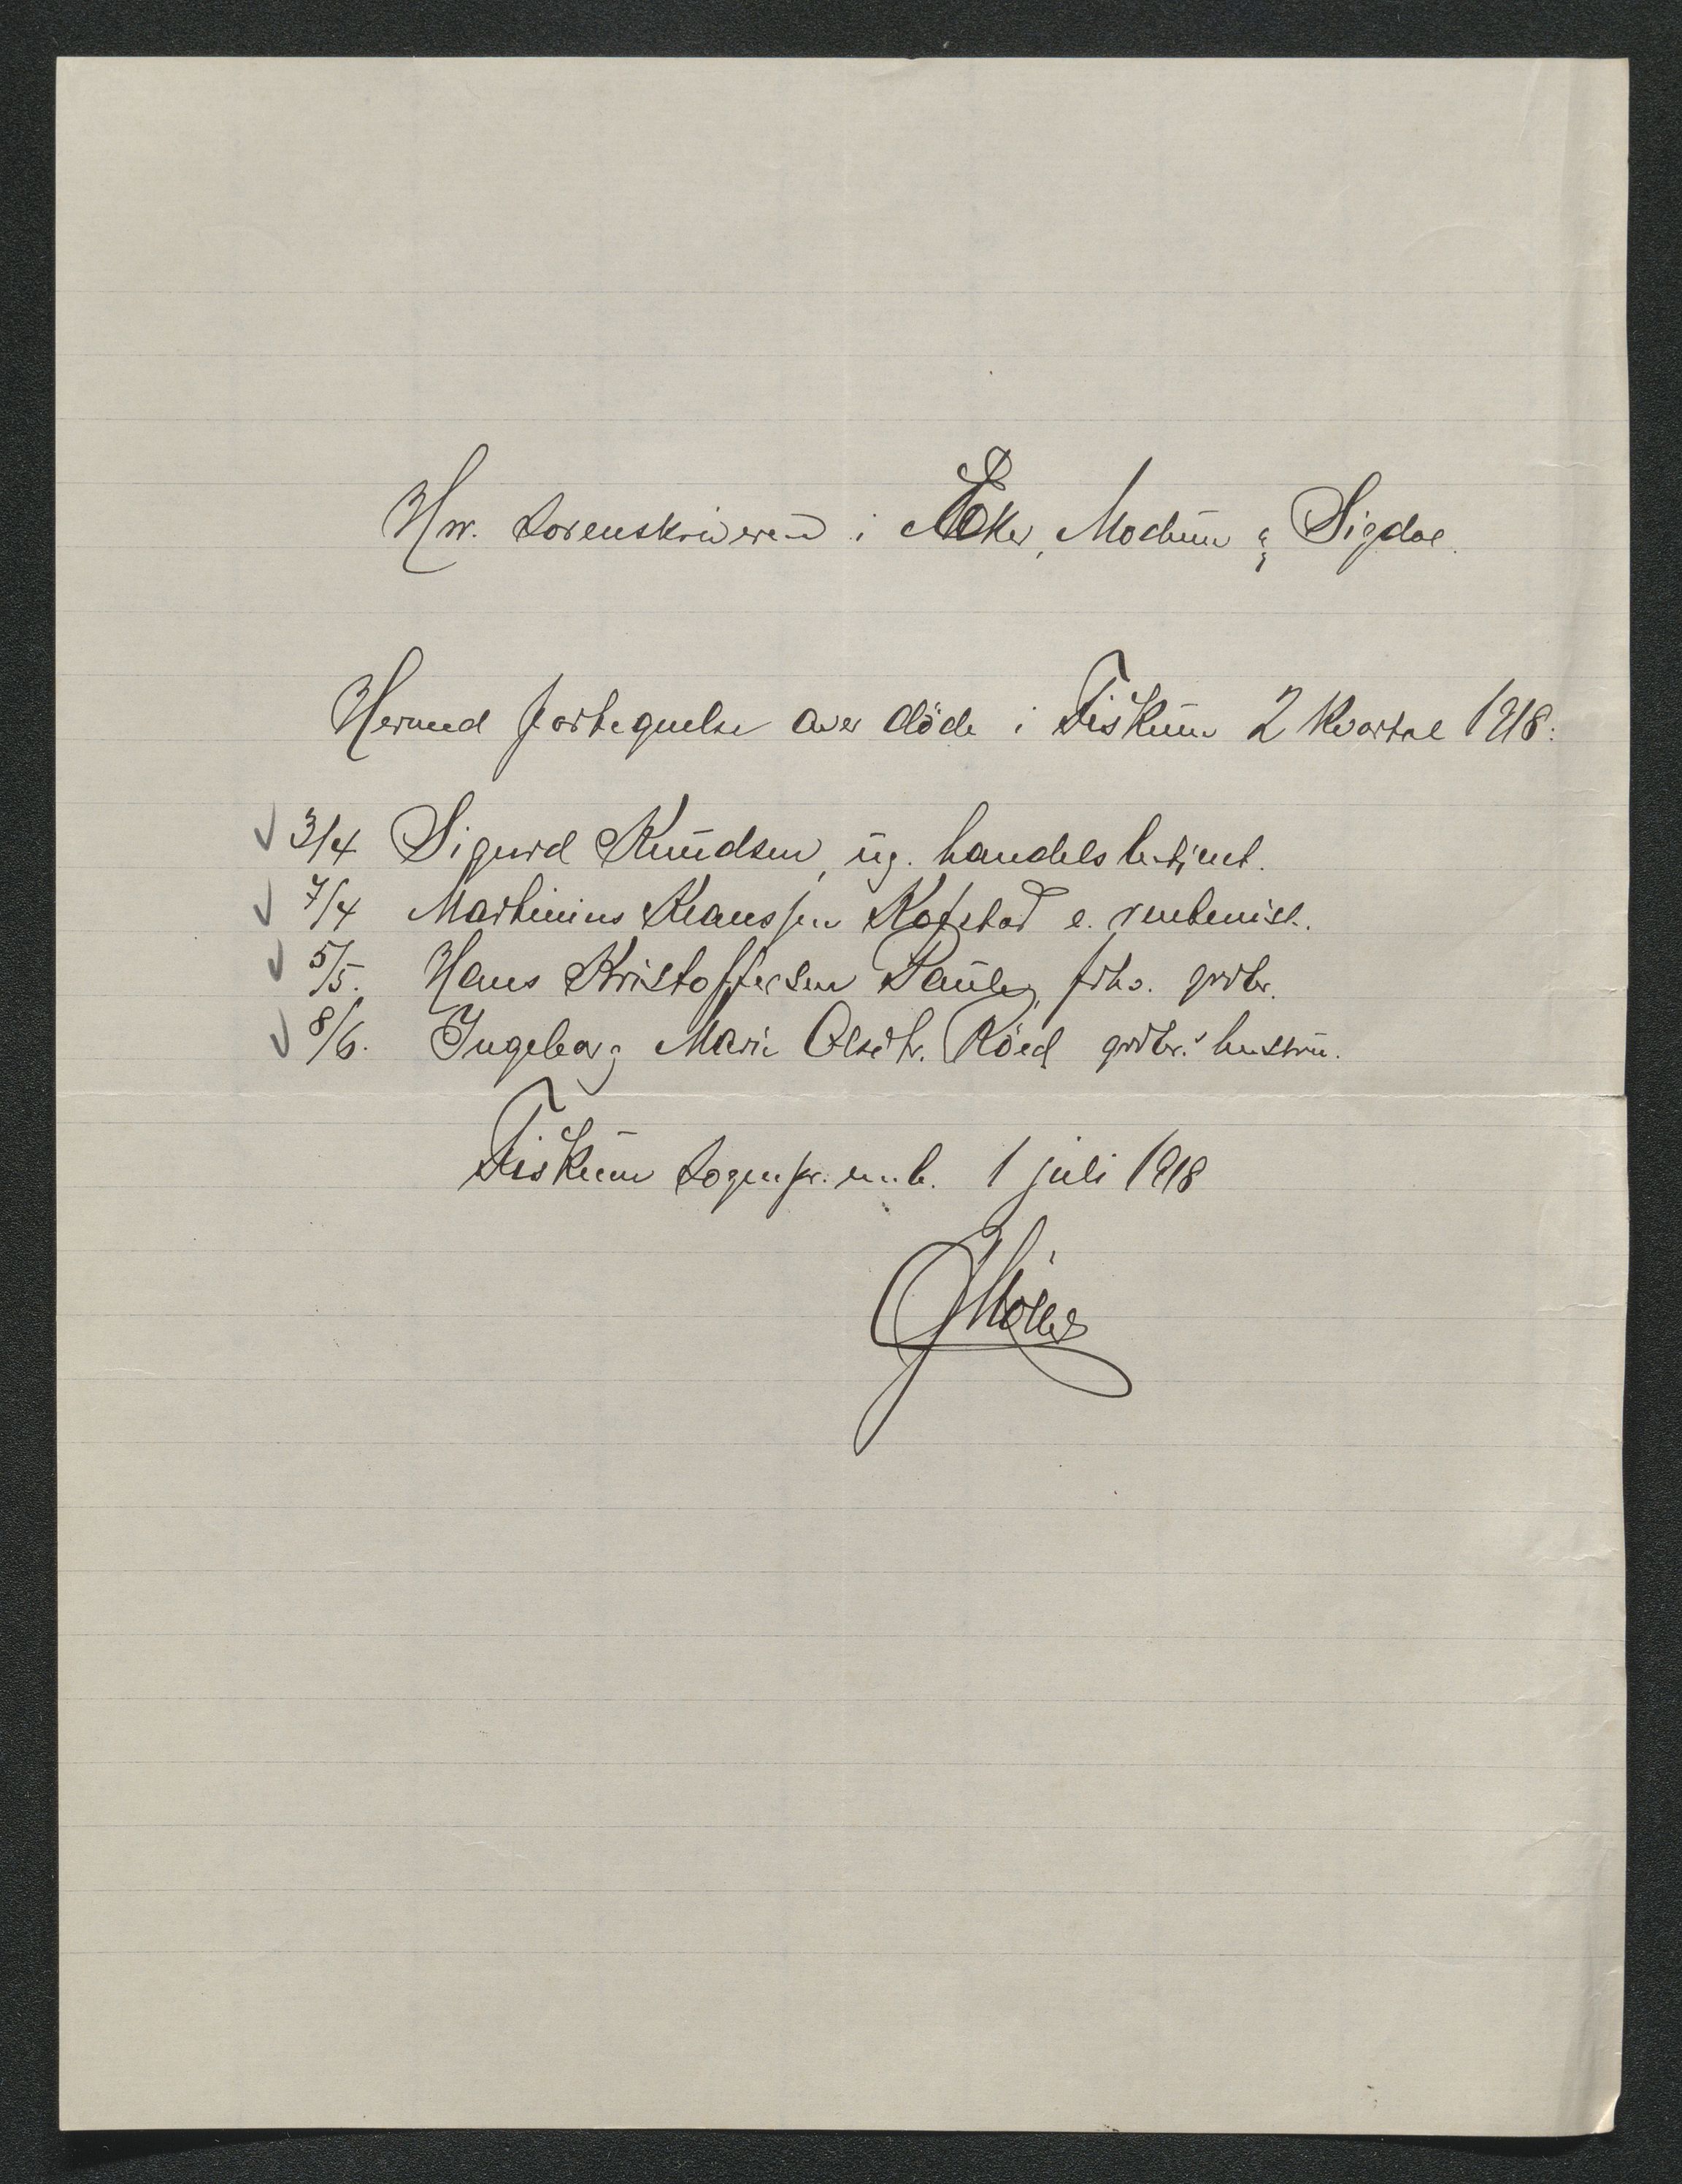 Hr. Sorenskriveren i Eker, Modum & Sigdal.
Hermed fortegnelse over döde i Fiskum 2 kvartal 1918:
✓ 3/4 Sigurd Knudsen, ug. handelsbetjent.
✓ 7/4 Martinius Klaussen Kopstad e. rentenist.
✓ 5/5. Hans Kristoffersen fhv. grdbr.
✓ 8/6. Ingeborg Marie Olsdtr. Röed grdbr.s hustru.
Fiskum sogenpr. emb. 1 juli 1918
Möller